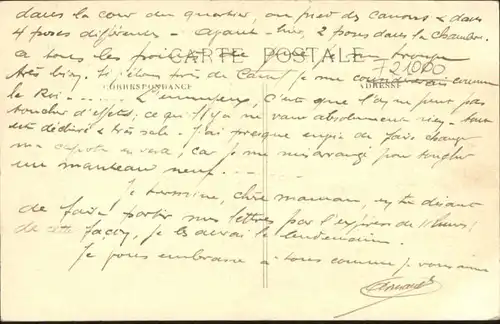 dans la cour du quartier, au pied des canons & dans
4 poses différentes - ayant hier, 2 poses dans la chambre.
CARTE POSTALE
à tous les
très bien. Si j'étais près de je me comme
721000
CORRESPONDANCE
ADRESSE
le Roi - L'ennuyeux, c'est que l'on ne peut pas
toucher d'effets; ce qu'il y a ne vaut absolument rien, tout
est déchiré & très sale. J'ai presque envie de faire changer
ma capote en veste, car je me pour
un manteau neuf
Je termine, chère maman, en te disant
de faire partir mes lettres par l'express de 11 heures
de cette façon, je les aurai le lendemain.
Je vous embrasse à tous comme je vous aime